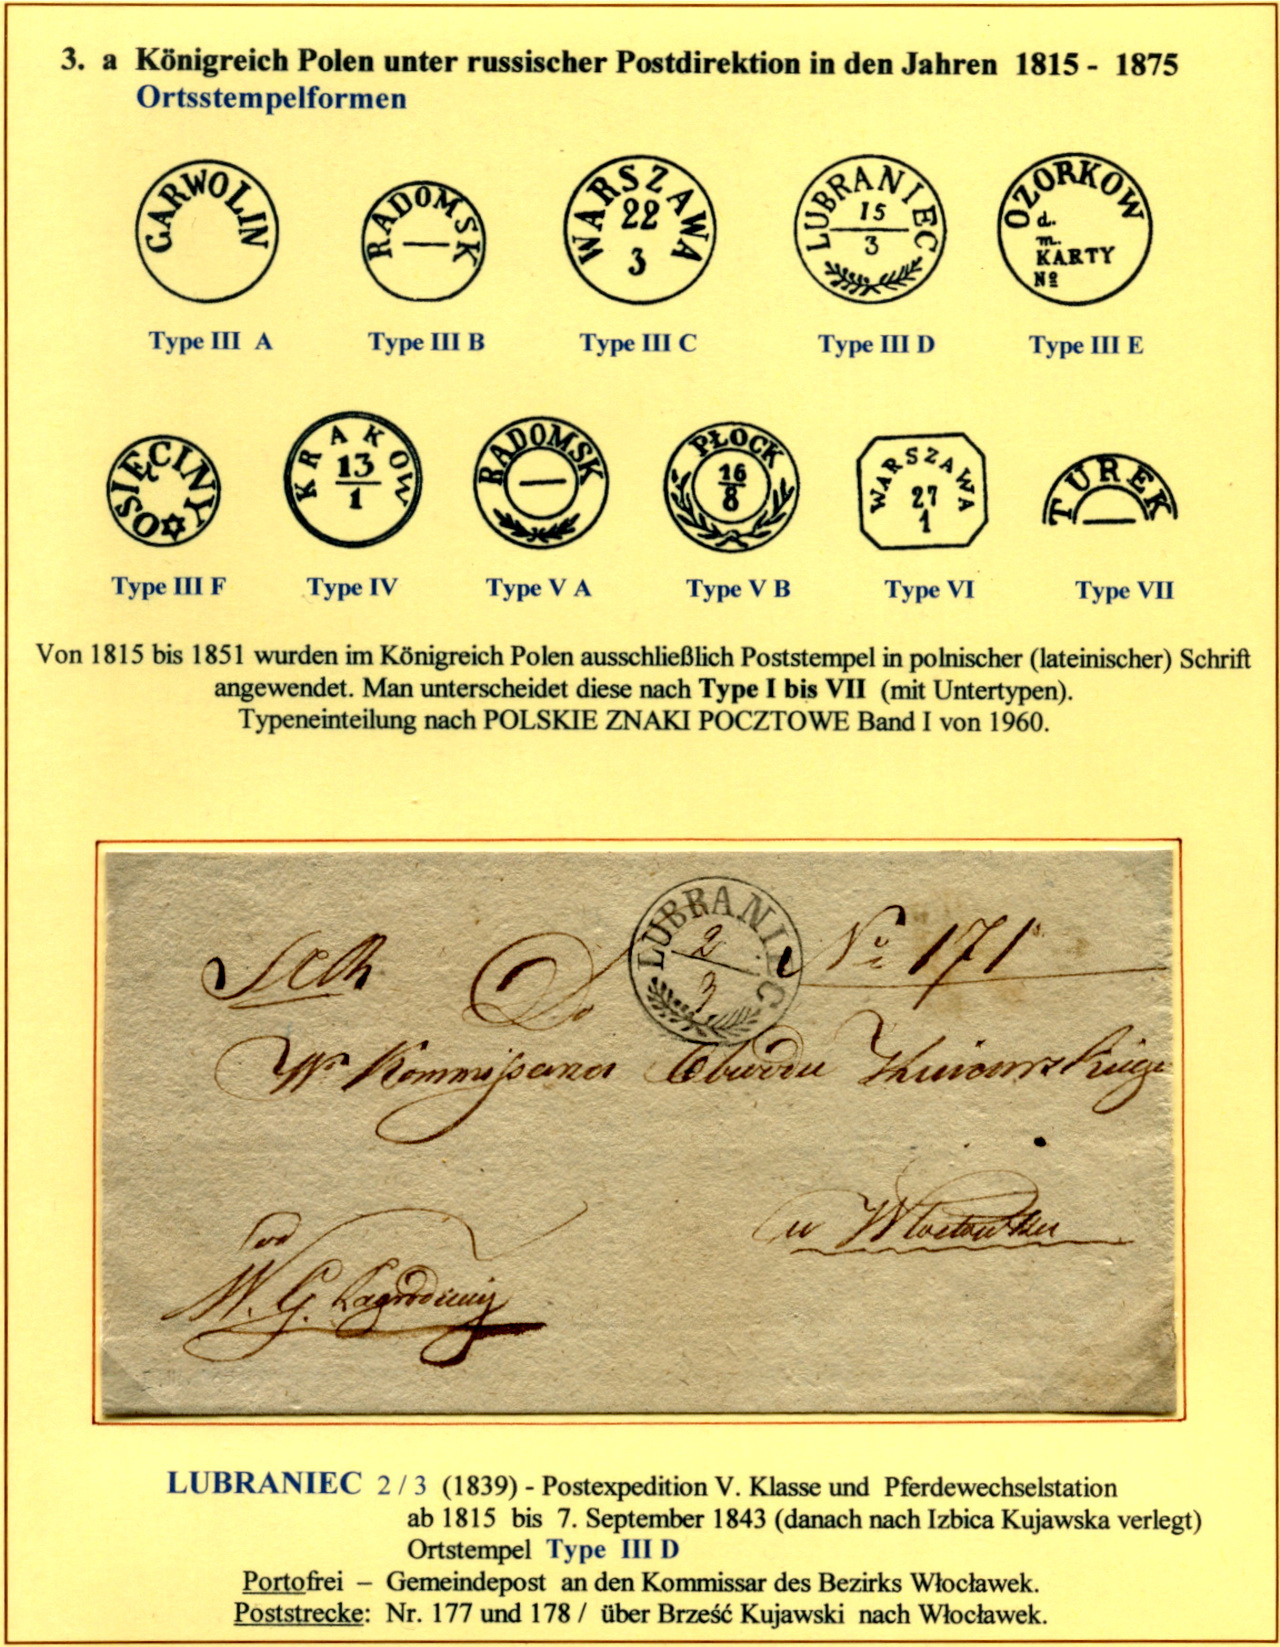 3. a Königreich Polen unter russischer Postdirektion in den Jahren 1815 - 1875
Ortsstempelformen
GARWOLIN
RADOMSK
WARSZAWA
22
3
LUBRANIEC
15
3
OZORKOW
d.
m.
KARTY
Nº
Type III A Type III B Type III C Type III D Type III E
OSIĘCINY
KRAKOW
13
1
RADOMSK
PŁOCK
16
8
WARSZAWA
27
1
TUREK
Type III F Type IV Type V A Type V B Type VI Type VII
Von 1815 bis 1851 wurden im Königreich Polen ausschließlich Poststempel in polnischer (lateinischer) Schrift
angewendet. Man unterscheidet diese nach Type I bis VII (mit Untertypen).
Typeneinteilung nach POLSKIE ZNAKI POCZTOWE Band I von 1960.
LUBRANIEC
2
3
Do Nº 171
Wº Kommissarza Obwodu Kuiawskiego
w Włocławku
od
W. G.
LUBRANIEC 2 / 3 (1839) - Postexpedition V. Klasse und Pferdewechselstation
ab 1815 bis 7. September 1843 (danach nach Izbica Kujawska verlegt)
Ortstempel Type III D
Portofrei – Gemeindepost an den Kommissar des Bezirks Włocławek.
Poststrecke: Nr. 177 und 178 / über Brześć Kujawski nach Włocławek.